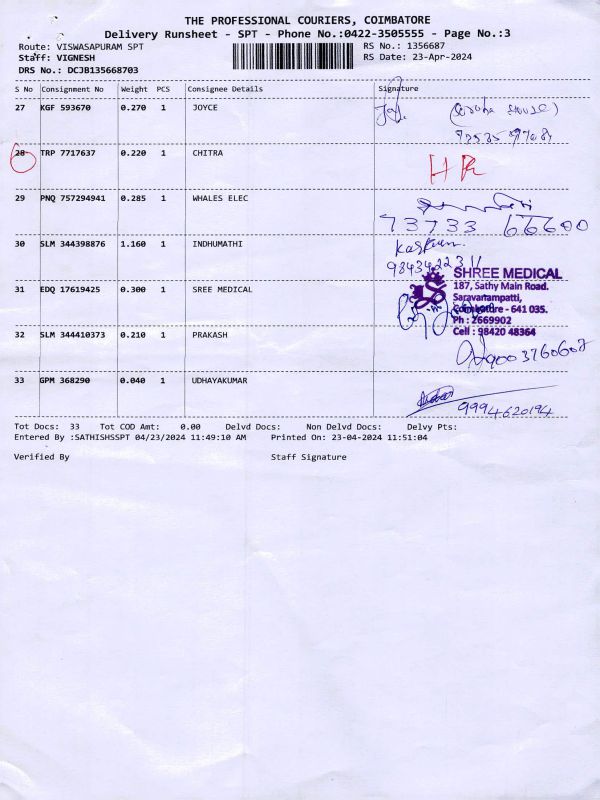 THE PROFESSIONAL COURIERS, COIMBATORE
Delivery Runsheet - SPT - Phone No.:0422-3505555 - Page No.:3
Route: VISWASAPURAM SPT RS No.: 1356687
Staff: VIGNESH RS Date: 23-Apr-2024
DRS No.: DCJB135668703
S No Consignment No Weight PCS Consignee Details Signature
27 KGF 593670 0.270 1 JOYCE
28 TRP 7717637 0.220 1 CHITRA
29 PNQ 757294941 0.285 1 WHALES ELEC
73733 66600
30 SLM 344398876 1.160 1 INDHUMATHI
31 EDQ 17619425 0.300 1 SREE MEDICAL
SHREE MEDICAL
187, Sathy Main Road.
Saravanampatti,
Coimbatore - 641 035.
Ph : 2669902
Cell : 98420 48364
32 SLM 344410373 0.210 1 PRAKASH
9003760607
33 GPM 368290 0.040 1 UDHAYAKUMAR
9994620194
Tot Docs: 33 Tot COD Amt: 0.00 Delvd Docs: Non Delvd Docs: Delvy Pts:
Entered By :SATHISHSSPT 04/23/2024 11:49:10 AM Printed On: 23-04-2024 11:51:04
Verified By Staff Signature